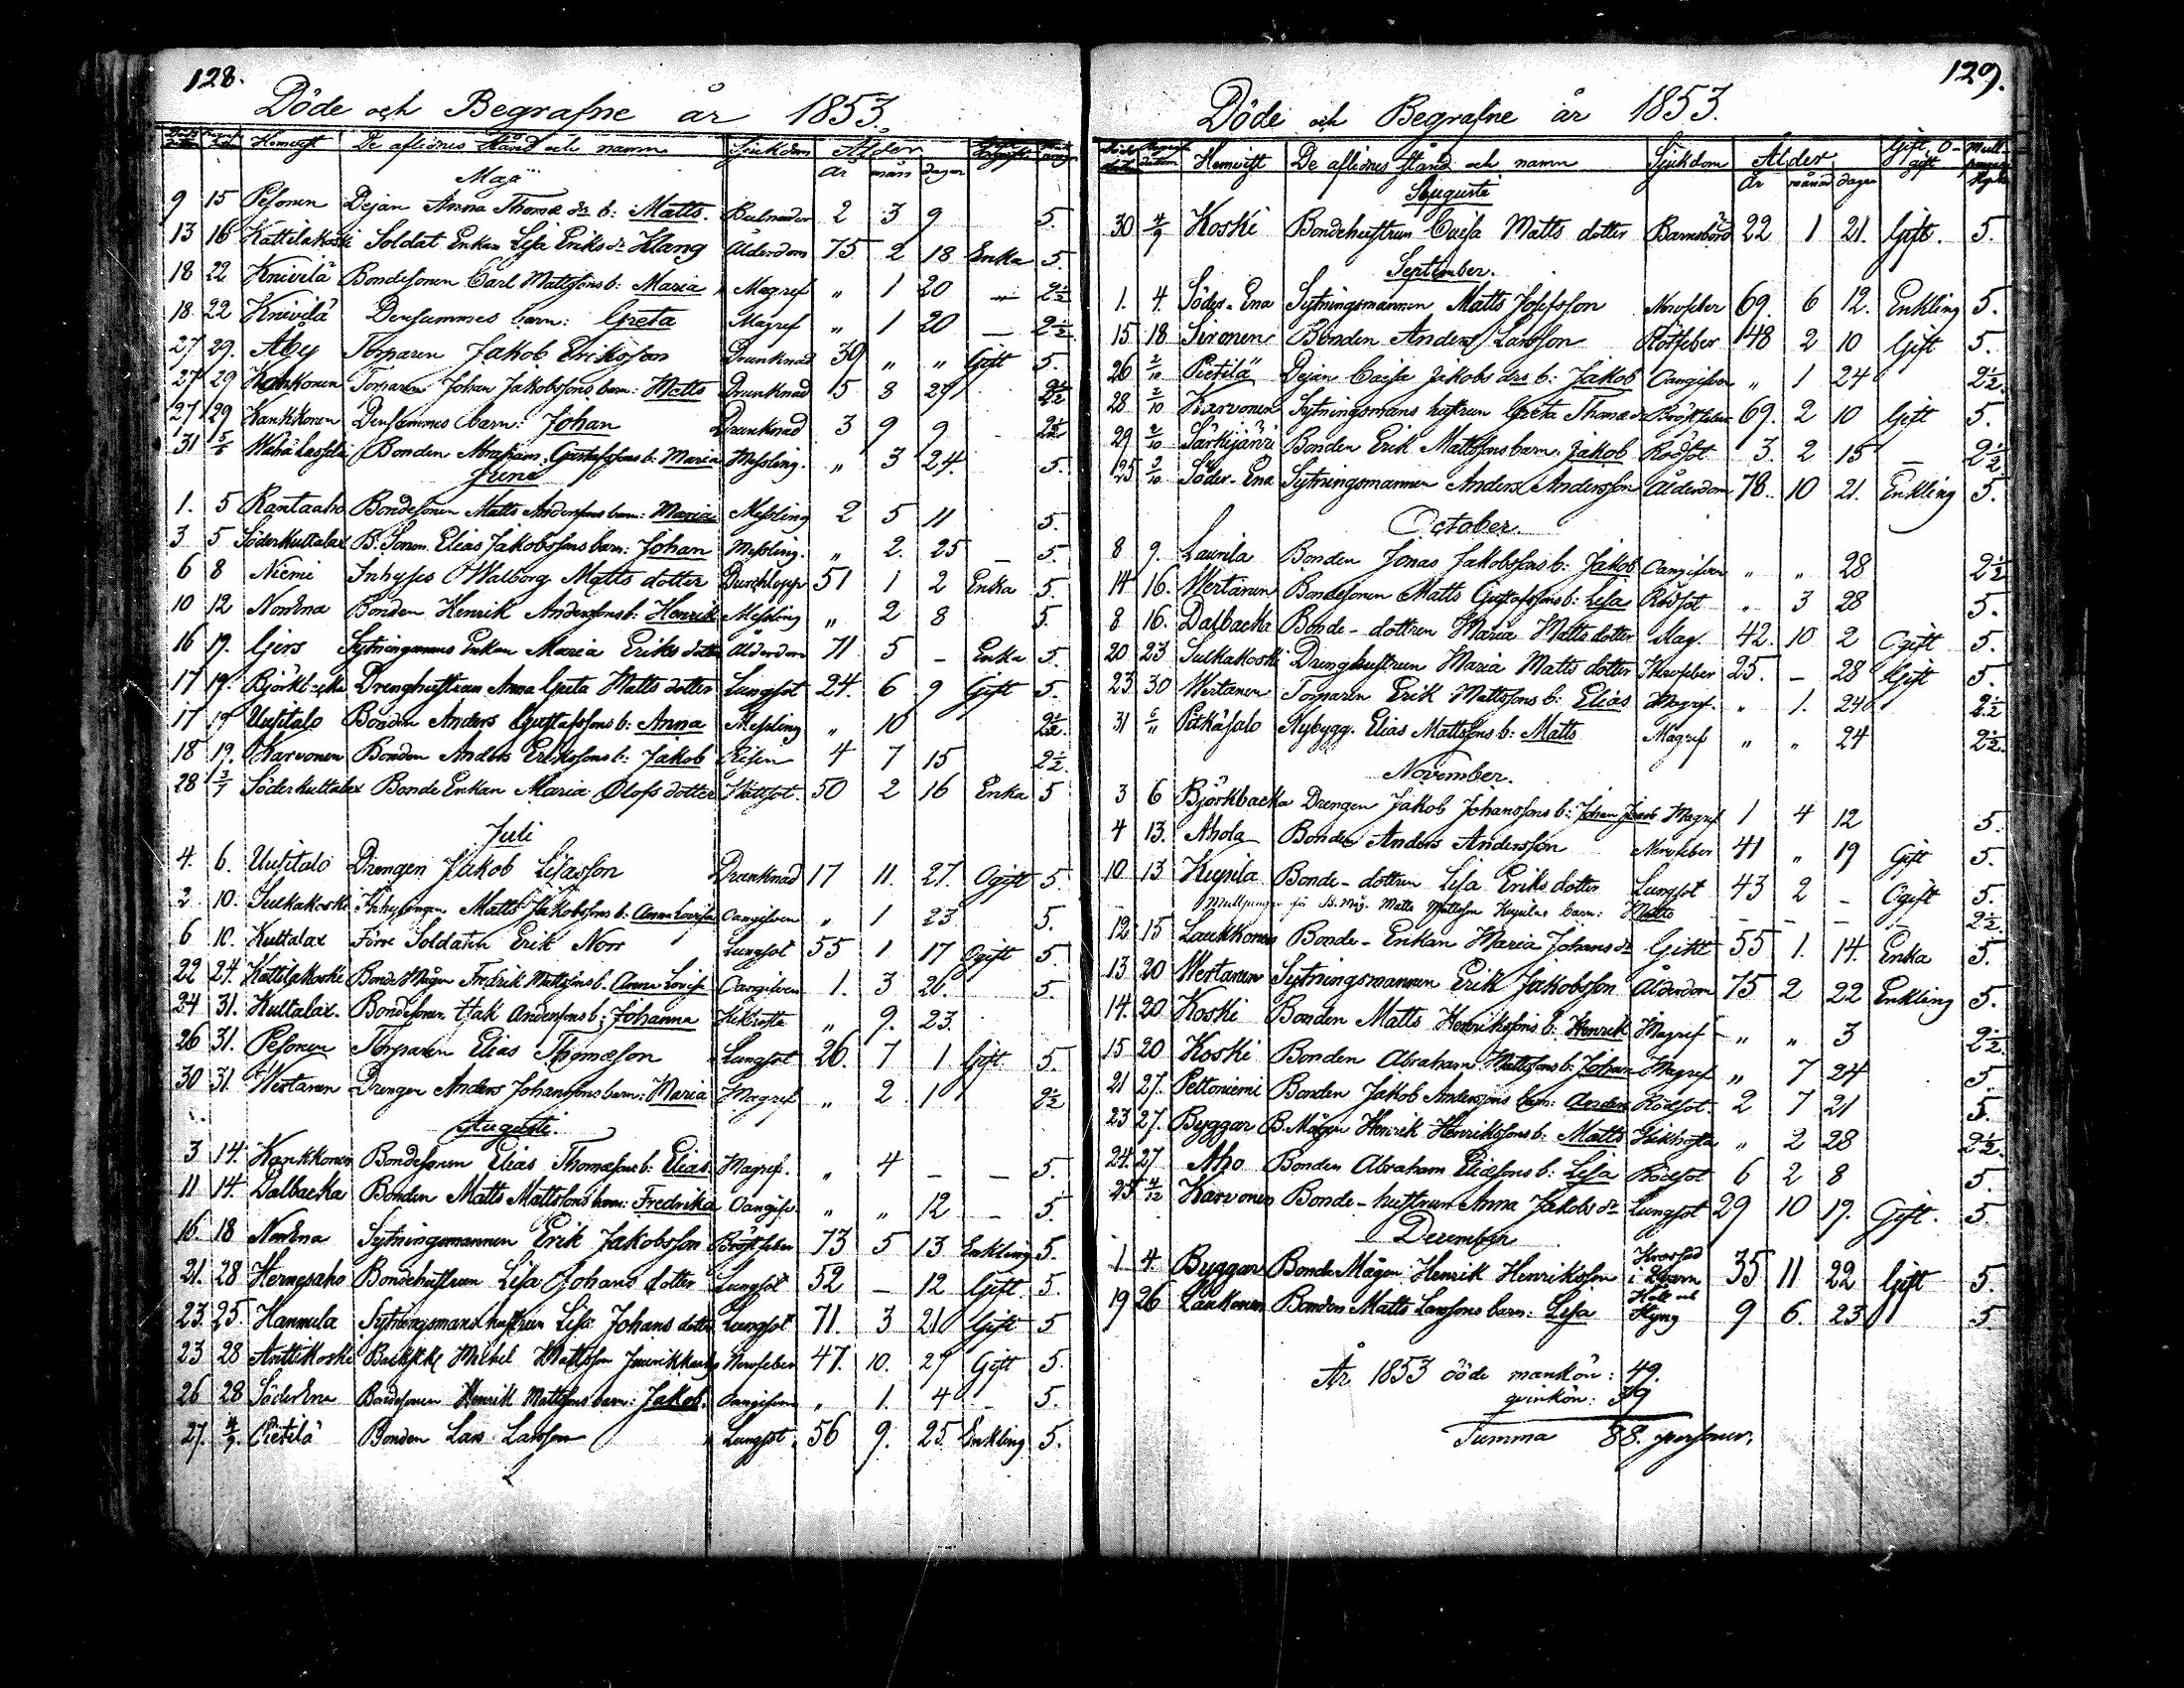 128.
Döde och Begrafne år 1853.
Hemvist De aflidnes Stånd och namn Sjukdom Ålder
år mån dagar
Maji
9 15 Pesonen Dejan Anna Thomæ dr b: Matts. 2 3 9 5.
13 16 Kattilakoski Soldat Enkan Lisa Eriks dr Klang Ålderdom 75 2 18 Enka 5.
18 22 Knivilä Bondesonen Carl Mattssons b: Maria Magref " 1 20 — 2½
18 22 Knivilä Densammes barn: Greta Magref " 1 20 — 2½
27 29. Åby Torparen Jakob Eriksson Drunknad 39 " " Gift 5.
27 29 Kankkonen Torparen Johan Jakobssons barn: Matts Drunknad 5 8 29 2½
27 29 Kankkonen Densammes barn: Johan Drunknad 3 9 9 2½
31 5/6 Bonden Abraham Gustafssons b: Maria Messling. " 3 24. 5.
Junii
1. 5 Rantaaho Bondesonen Matts Anderssons barn: Maria Messling 2 5 11 5.
3 5 Söderkultalax B. Sonen Elias Jakobssons barn: Johan Messling. " 2. 25 — 5.
6 8 Niemi Inhyses Walborg Matts dotter Durchlopp 51 1 2 Enka 5.
10 12 NorrEna Bonden Henrik Anderssons b: Henrik Messling " 2 8 5.
16 19. Gers Sytningsmans Enkan Maria Eriks dotter Ålderdom 71 5 — Enka 5.
17 19. Björkbacka Drenghustrun Anna Greta Matts dotter Lungsot 24. 6 9 Gift 5.
17 19 Uusitalo Bonden Anders Gustafssons b: Anna Messling " 10 2½
18 19. Karvonen Bonden Anders Erikssons b: Jakob Risen 4 7 15 2½.
28 3/7 Söderkultalax Bonde Enkan Maria Olofs dotter 50 2 16 Enka 5
Juli
4. 6. Uusitalo Drengen Jakob Lisasson Drunknad 17 11. 27. Ogift 5.
2 10. Sulkakoski Inhysingen Matts Jakobssons b: Anna Lovisa Oangifven " 1 23 5.
6 10. Kultalax Förre Soldaten Erik Norr Lungsot 55 1 17 Ogift 5.
22 24. Kattilakoski Bonde Mågen Fredrik Mattssons b. Anna Lovisa Oangifven 1. 3 26. 5.
24 31. Kultalax. Bondesonen Isak Anderssons b: Johanna Kikhosta " 9. 23.
26 31. Pesonen Torparen Elias Thomæson Lungsot 26. 7 1. Gift 5.
30 31. Wertanen Drengen Anders Johanssons barn: Maria Magref " 2 1 2½
Augusti.
3 14. Kankkonen Bondesonen Elias Thomæsons b: Elias Magref. " 4 — — 5.
11 14. Dalbacka Bonden Matts Mattssons barn: Fredrika Oangifv. " " 12 — 5.
16. 18 NorrEna Sytningsmannen Erik Jakobsson Bröstfeber 73 5 13 Enkling 5.
21. 28 Herneaho Bondehustrun Lisa Johans dotter Lungsot 52 — 12 Gift. 5.
23. 25. Hannula Sytningsmans hustrun Lisa Johans dotter Lungsot 71. 3 21 Gift 5
23 28 Anttikoski Michel Mattsson Nervfeber 47. 10. 29 Gift 5.
26 28 SöderEna Bondesonen Henrik Mattssons barn: Jakob. Oangifven " 1. 4 — 5.
27. 4/9. Pietilä Bonden Lars Larsson Lungsot 56 9. 25. Enkling 5.
129.
Döde och Begrafne år 1853.
Hemvist De aflidnes stånd och namn Sjukdom Ålder Gift, O-gift
år månad dagar
Augusti
30 4/9 Koski Bondehustrun Caisa Matts dotter Barnsbörd 22 1 21. Gift. 5.
September.
1. 4. Söder-Ena Sytningsmannen Matts Josefsson Nervfeber 69. 6 12. Enkling 5.
15 18 Sironen Bonden Anders Larsson Rötfeber 48 2 10 Gift 5.
26 2/10 Pietilä Dejan Caisa Jakobs drs b: Jakob Oangifven " 1 24 2½.
28 2/10 Karvonen Sytningsmans hustrun Greta Thomæ dr Bröstfeber 69. 2 10 Gift 5.
29 2/10 Särkijärvi Bonden Erik Mattssons barn: Jakob Rödsot 3. 2 15 — 2½
25 2/10 Söder-Ena Sytningsmannen Anders Andersson Ålderdom 78. 10 21. Enkling 5.
October.
8 9. Laurila Bonden Jonas Jakobssons b: Jakob Oangifven " " 28 2½
14 16. Wertanen Bondesonen Matts Gustafssons b: Lisa Rödsot " 3 28 5.
8 16. Dalbacka Bonde-dottren Maria Matts dotter Slag. 42. 10 2 Ogift 5.
20 23 Sulkakoski Drenghustrun Maria Matts dotter Nervfeber 25. — 28 Gift 5.
23 30 Wertanen Torparen Erik Mattssons b: Elias Magref. " 1. 24 2½
31 6/11 Pitkäsalo Nybygg. Elias Mattssons b: Matts Magref " " 24 2½.
November.
3 6 Björkbacka Drengen Jakob Johanssons b: Johan Jakob Magref 1 4 12 5.
4 13. Ahola Bonden Anders Andersson Nervfeber 41 " 19 Gift 5.
10 13 Kupila Bonde-dottren Lisa Eriks dotter Lungsot 43 2 — Ogift 5.
Mullpengar för Matts Mattsson Kupilas barn: Matts — — — — 2½.
12 15 Laukkonen Bonde-Enkan Maria Johans dr Gikt 55 1. 14. Enka 5.
13 20 Wertanen Sytningsmannen Erik Jakobsson Ålderdom 75 2 22 Enkling 5.
14. 20. Koski Bonden Matts Henrikssons b: Henrik Magref " " 3 2½.
15 20 Koski Bonden Abraham Mattssons b: Johan Magref " 7 24 5.
21 27. Peltoniemi Bonden Jakob Anderssons barn: Anders Rödsot. 2 7 21 5.
23 27. Byggar B. Mågen Henrik Henrikssons b: Matts Kikhosta " 2 28 2½.
24. 27 Aho Bonden Abraham Eliæsons b: Lisa Rödsot 6 2 8 5.
25 4/12 Karvonen Bonde-hustrun Anna Jakobs dr Lungsot 29 10 19. Gift. 5.
December
1 4. Byggar Bonde Mågen Henrik Henriksson i Qvarn 35 11 22 Gift 5.
19 26 Laukonen Bonden Matts Larssons barn: Lisa Håll och Styng 9 6. 23 5.
År 1853 döde mankön: 49.
qvinkön: 39
Summa 88. personer.